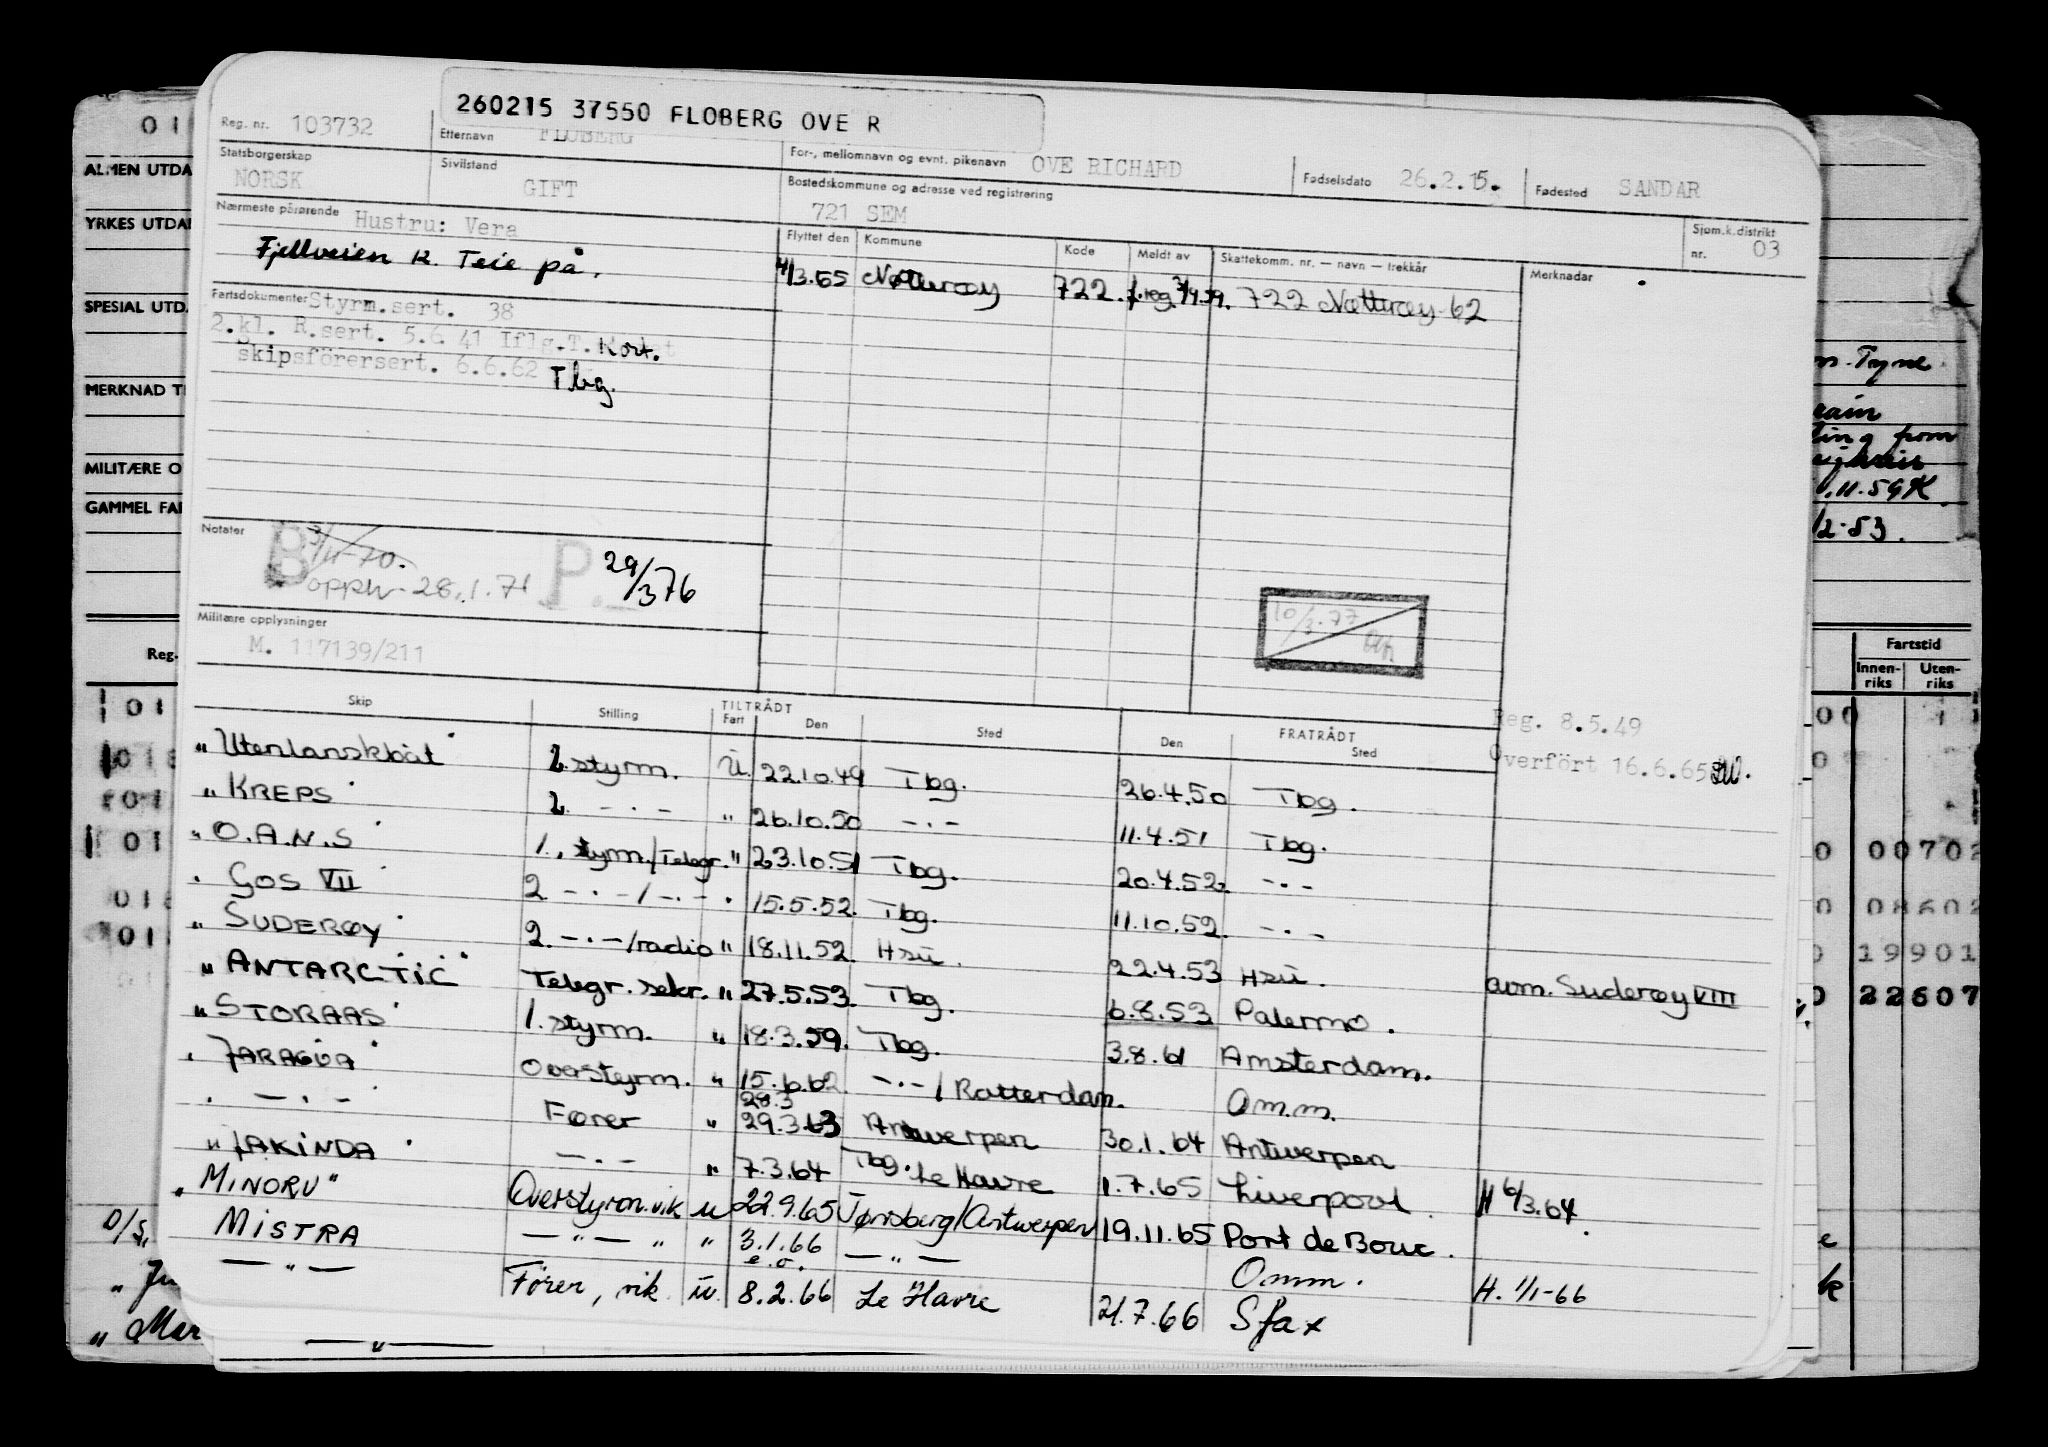 260215 37550 FLOBERG OVE R
Reg. nr. 103732
Etternavn FLOBERG
For-, mellomnavn og evnt. pikenavn OVE RICHARD
Fødselsdato 26.2.15.
Fødested SANDAR
Statsborgerskap NORSK
Sivilstand GIFT
Bostedskommune og adresse ved registrering
721 SEM
Sjøm.k.distrikt nr. 03
Nærmeste pårørende Hustru: Vera
Flyttet den Kommune Kode Meldt av Skattekomm. nr. — navn — trekkår Merknader
Fjellveien 12. Teie på.
4/3.65 Nøtterøy 722. f.reg 3/4.59. 722 Nøtterøy 62
Fartsdokumenter Styrm.sert. 38
2.kl. R.sert. 5.6 41 Iflg.T. Kort.
skipsförersert. 6.6.62 Tbg.
Notater
B 3/11-70.
opph. 28.1.71 P. 29/3 76
10/3.77
Militære opplysninger
M. 117139/211
Skip Stilling TILTRÅDT Fart Den Sted FRATRÅDT Den Sted
Reg. 8.5.49
Overfört 16.6.65
"Utenlanskbåt" 2.styrm. U. 22.10.49 Tbg. 26.4.50 Tbg.
"KREPS" 2. — . — " 26.10.50 — . — 11.4.51 Tbg.
"O.A.N.S" 1. styrm./Telegr. " 23.10.51 Tbg. 20.4.52. — . —
" GOS VII 2 — . — / — . — " 15.5.52. Tbg. 11.10.52. — . —
"SUDERØY" 2. — . — /radio " 18.11.52. Hsü. 22.4.53 Hsü. avm. Suderøy VIII
"ANTARCTIC" Telegr. sekr. " 27.5.53. Tbg. 6.8.53 Palermo.
"STORAAS" 1. styrm. " 18.3.59. Tbg. 3.8.61 Amsterdam.
"JARAGUA" Overstyrm. " 15.6.62. — . — / Rotterdam. Omm.
" — . — " Fører " 28.3 29.3.63 Antwerpen 30.1.64 Antwerpen
"JAKINDA" — . — " 7.3.64 Tbg. Le Havre 1.7.65 Liverpool. H 6/3.64
"MINORU" Overstyrm.vik u 22.9.65 Tønsberg/Antwerpen 19.11.65 Port de Bouc.
MISTRA — " — " " 3.1.66 e.o. — " — Omm. H. 1/1-66
— " — Förer, vik ü. 8.2.66 Le Havre 21.7.66 Sfax
— " —
ALMEN UTDA
YRKES UTDA
SPESIAL UTD
MERKNAD T
MILITÆRE O
GAMMEL FA
Reg.
Tyne
from
11.59
12.53.
Fartstid
Innen-riks Uten-riks
00702
08602
19901
22607
D/S.